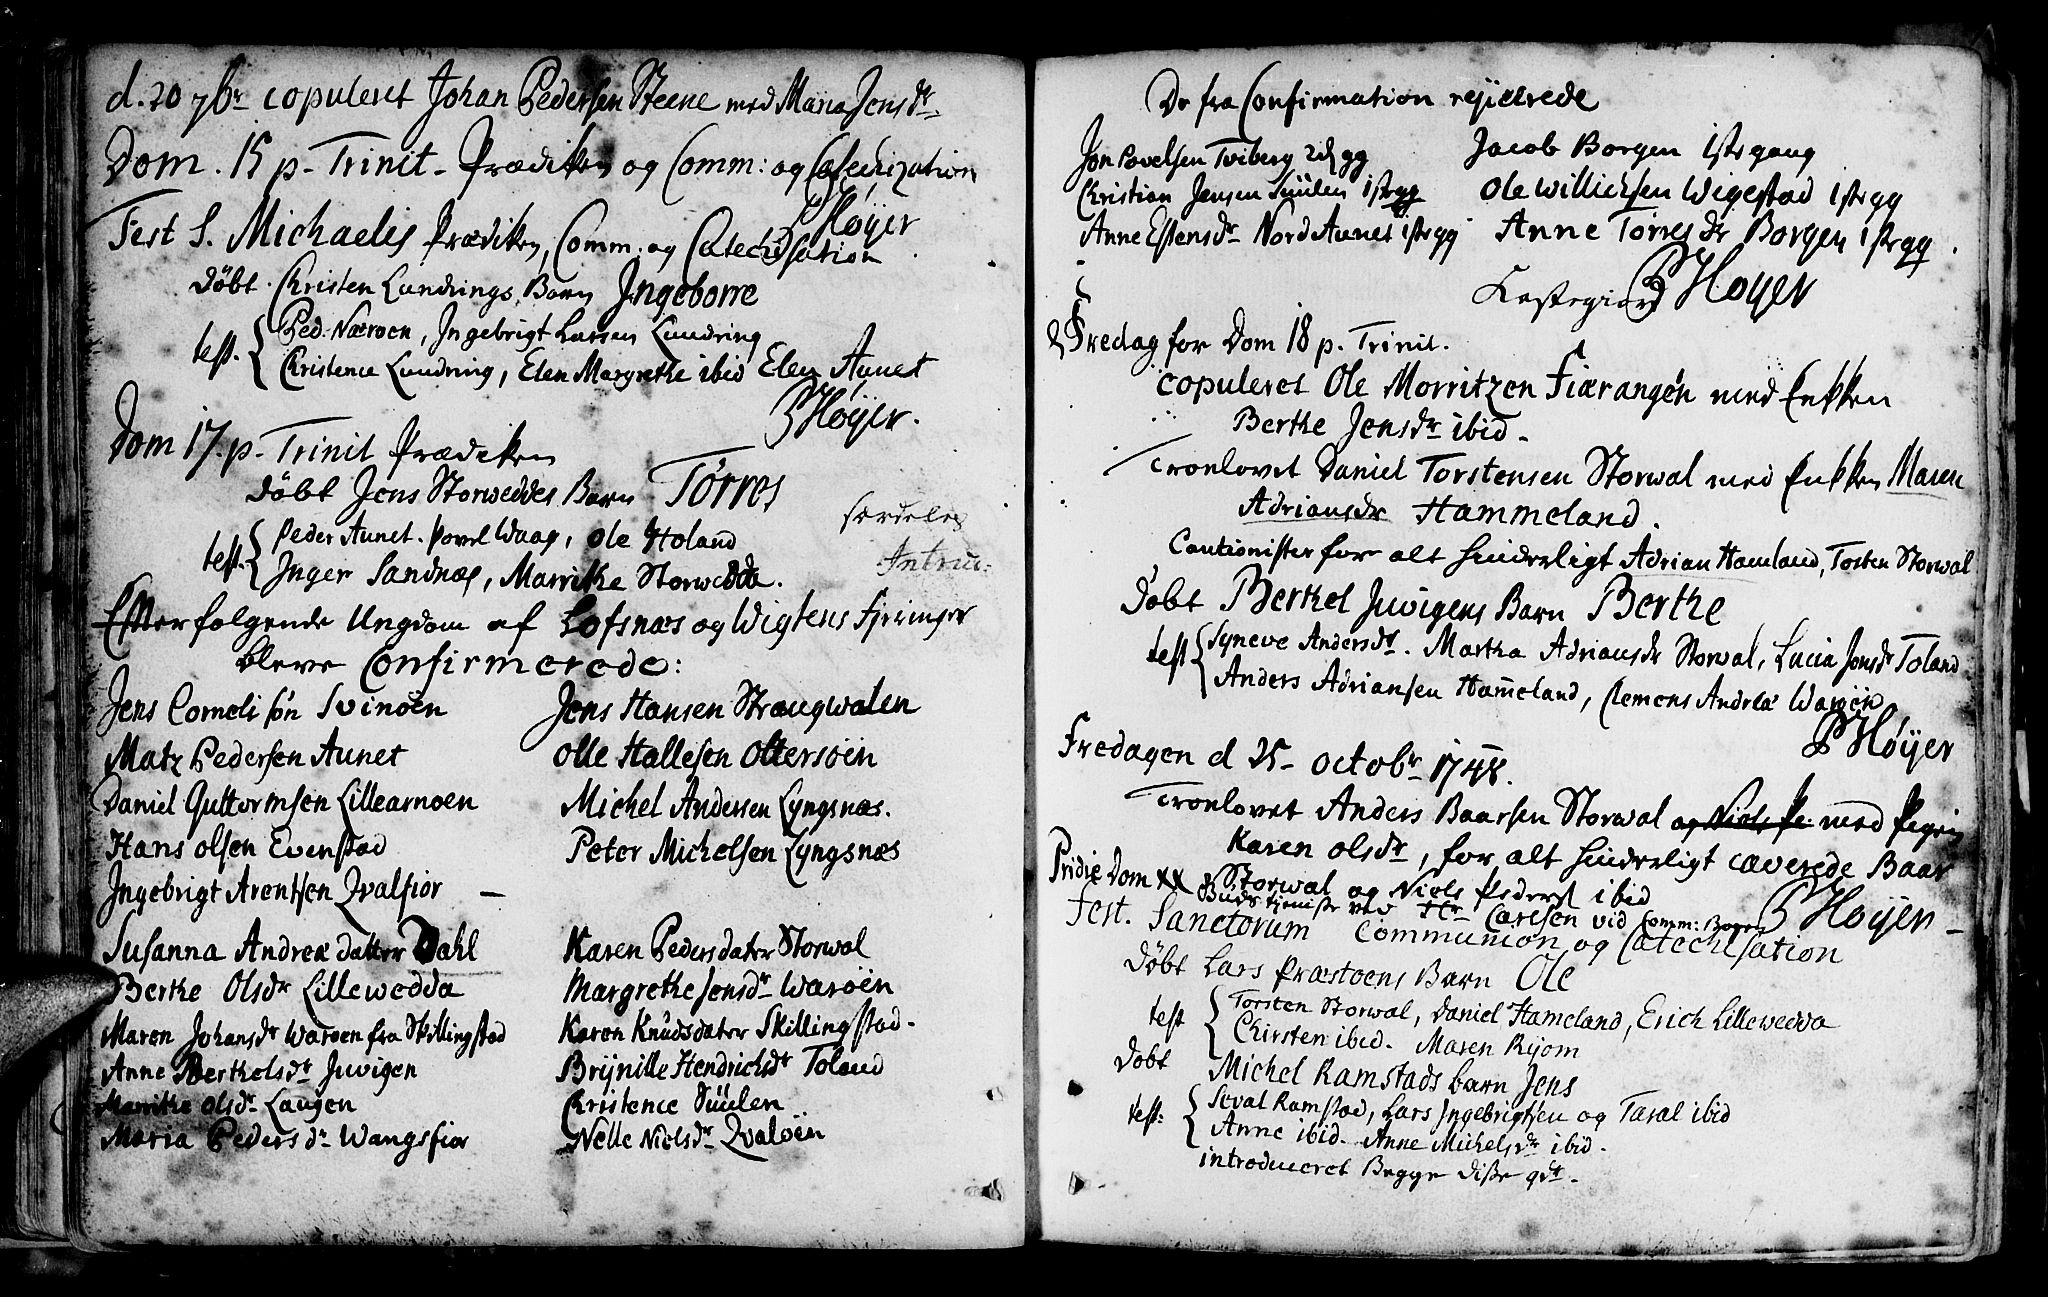 d. 20 7br copuleret Johan Pedersen Steene med Maria Jensdr
Dom. 15 p. Trinit. Prædiken og Comm: og Catechization
PHøyer
Fest S. Michaelis Prædiken, Comm: og Catechisation
døbt. Christen Lundrings Barn Ingeborre
test. Ped. Næroen, Ingebrigt Larsen Lundring
Christence Lundring, Elen Margrethe ibid Elen Aunet
PHøyer.
Dom 17. p. Trinit Prædiken
døbt Jens Storweddes Barn Törres
test. Peder Aunet. Povel Waag, Ole Holand
Inger Sandnæs, Marrithe Storwedda.
særdeles
Efterfølgende Ungdom af Lofsnæs og Wigtens Fjeringer
bleve Confirmerede:
Jens Cornelisøn Svinöen
Matz Pedersen Aunet
Daniel Guttormsen Lillearnoen
Hans olsen Evenstad
Ingebrigt Arentsen Qvalfior
Susanna Andreæ datter Dahl
Berthe Olsdr Lillewedda
Maren Johansdr Waroen fra Skillingstad
Anne Berthelsdr Juvigen
Marrithe Olsdr Laugen
Maria Pedersdr Wangsfior
Jens Hansen Straugwalen
Olle Hallesen Ottersöen
Michel Andersen Lyngsnæs.
Peter Michelsen Lyngsnæs
Karen Pedersdater Storwal
Margrethe Jensdr Waröen
Karen Knudsdater Skillingstad.
Brynille Hendrichsdr Toland
Christence Duulen
Nelle Nielsdr Qvalöen
De fra Confirmation rejicerede
Jon Povelsen Tviberg 2d gg
Christian Jensen Duulen 1ste gg
Anne Estensdr Nord Aunet 1ste gg
Jacob Borgen 1ste gang
Ole Willichsen Wigestad 1ste gg
Anne Torresdr Borgen 1ste gg.
PHøyer
Fredag for Dom 18 p. Trinit.
copuleret Ole Morritzen Fiærangen med Enkken
Berthe Jensdr ibid.
Tronlovet Daniel Torstensen Storwal med Enkken Maren
Adriansdr Hammeland.
Cautionister for alt hinderligt Adrian Hameland, Torsten Storwal
Døbt Berthel Juvigens Barn Berthe
test Syneve Andersdr. Martha Adriansdr Storwal, Lucia Jonsdr Toland
Anders Adriansen Hammeland, Clemens Andreæ Waröen
PHøyer
Fredagen d 25. octobr 1748.
Tronlovet Anders Baarsen Storwal og Niels Pe. med Pigen
Karen olsdr, for alt hinderligt caverede Baar
Storwal og Niels Peders: ibid
PHøyer
Pridie Dom XX Guds tjeniste ved Hr Carlsen vid Comm: Bogen
Fest. Sanctorum Communion og Catechisation
Døbt Lars Præstoens Barn Ole
test Torsten Storwal, Daniel Hameland, Erich Lillewedda
Chirsten ibid. Maren Ryom
Døbt Michel Ramstads barn Jens
test: Sival Ramstad, Lars Ingebrigtsen og Taral ibid
Anne ibid. Anne Michelsdr ibid.
introduceret Begge disse qdr.